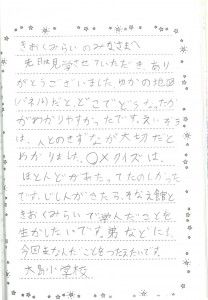 きおくみらいのみなさまへ
先日は見学させていただき、あり
がとうございました。ゆかの地図
パネルだと、どこでどうなったか
がわかりやすかったです。えいぞう
は、人とのきずなが大切だと
わかりました。〇×クイズは、
ほとんどがあたってたのしかった
です。じしんがきたら、そなえ館と
きおくみらいで学んだことを
生かしたいです。弟などに、
今回まなんだことをつたえたいです。
大島小学校